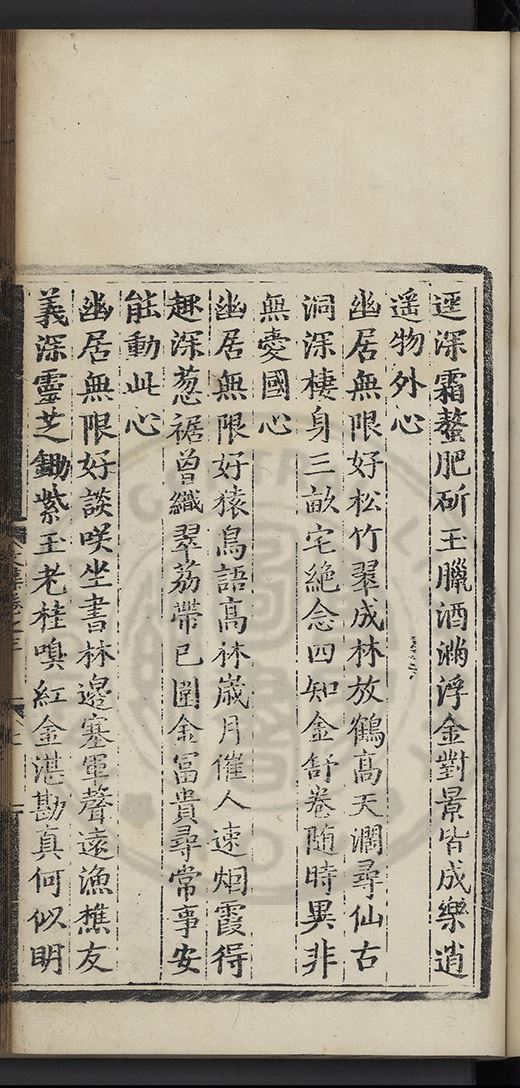 逕深霜螯肥斫玉臘酒滿浮金對景皆成樂逍
遥物外心
幽居無限好松竹翠成林放鶴高天濶尋仙古
洞深棲身三畝宅絶念四知金舒卷随時異非
無憂國心
幽居無限好猿鳥語高林嵗月催人速烟霞得
趣深葱裾曽織翠荔帶已圍金冨貴尋常事安
能動此心
幽居無限好談咲坐書林邉塞軍聲遠漁樵友
義深靈芝鋤紫玉老桂嗅紅金湛勘真何似明